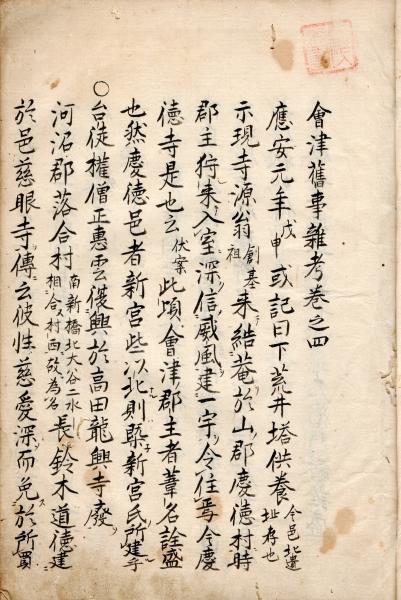 會津舊事雜考卷之四
應安元年戊申或記曰下荒井塔供養今邑北遺址存也
示現寺源翁創基祖来結菴於山郡慶德村時
郡主狩来入室深信威風建一宇令住焉今慶
德寺是也云伏案此頃會津郡主者葦名詮盛
也然慶德邑者新宮些以北則縣新宮氏所建乎
○台徒權僧正惠雲復興於高田龍興寺廢
河沼郡落合村南新橋北大谷二水相合村西故為名長鈴木道德建
於邑慈眼寺傳云彼性慈愛深而免於所買